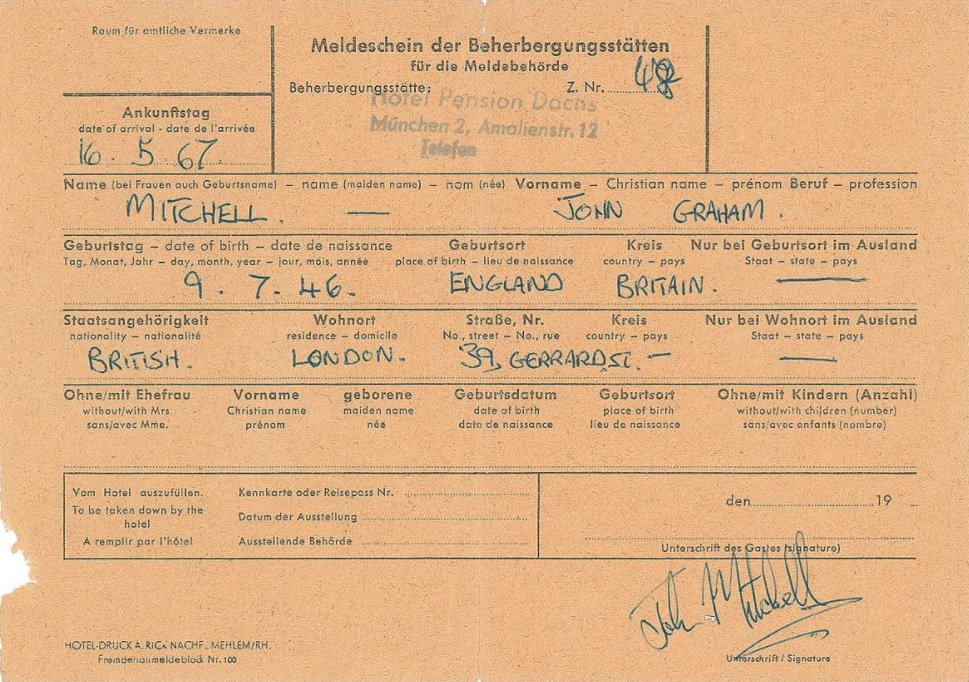 Raum für amtliche Vermerke
Meldeschein der Beherbergungsstätten
für die Meldebehörde
Beherbergungsstätte:
Z. Nr.
Hotel Pension Dachs
München 2, Amalienstr. 12
Telefon
Ankunftstag
date of arrival - date de l'arrivée
16. 5. 67.
Name (bei Frauen auch Geburtsname) – name (maiden name) – nom (née) Vorname – Christian name – prénom Beruf – profession
MITCHELL. — JOHN GRAHAM.
Geburtstag – date of birth – date de naissance Geburtsort Kreis Nur bei Geburtsort im Ausland
Tag, Monat, Jahr – day, month, year – jour, mois, année place of birth – lieu de naissance country – pays Staat – state – pays
9. 7. 46. ENGLAND BRITAIN. —
Staatsangehörigkeit Wohnort Straße, Nr. Kreis Nur bei Wohnort im Ausland
nationality – nationalité residence – domicile No., street – No., rue country – pays Staat – state – pays
BRITISH. LONDON. 39, GERRARD.ST. — —
Ohne/mit Ehefrau Vorname geborene Geburtsdatum Geburtsort Ohne/mit Kindern (Anzahl)
without/with Mrs Christian name maiden name date of birth place of birth without/with children (number)
sans/avec Mme. prénom née date de naissance lieu de naissance sans/avec enfants (nombre)
Vom Hotel auszufüllen. Kennkarte oder Reisepass Nr.
To be taken down by the
hotel
Datum der Ausstellung
A remplir par l'hôtel Ausstellende Behörde
den 19
Unterschrift des Gastes (signature)
John Mitchell
Unterschrift / Signature
HOTEL-DRUCK A. RICA NACHF., MEHLEM/RH.
Fremdenanmeldeblock Nr. 100